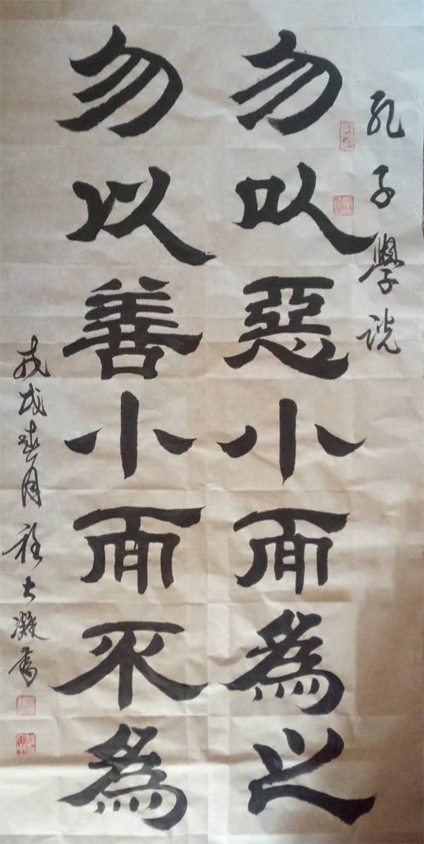 孔子學説
勿以惡小而為之
勿以善小而不為
戊戌春月程士凝書